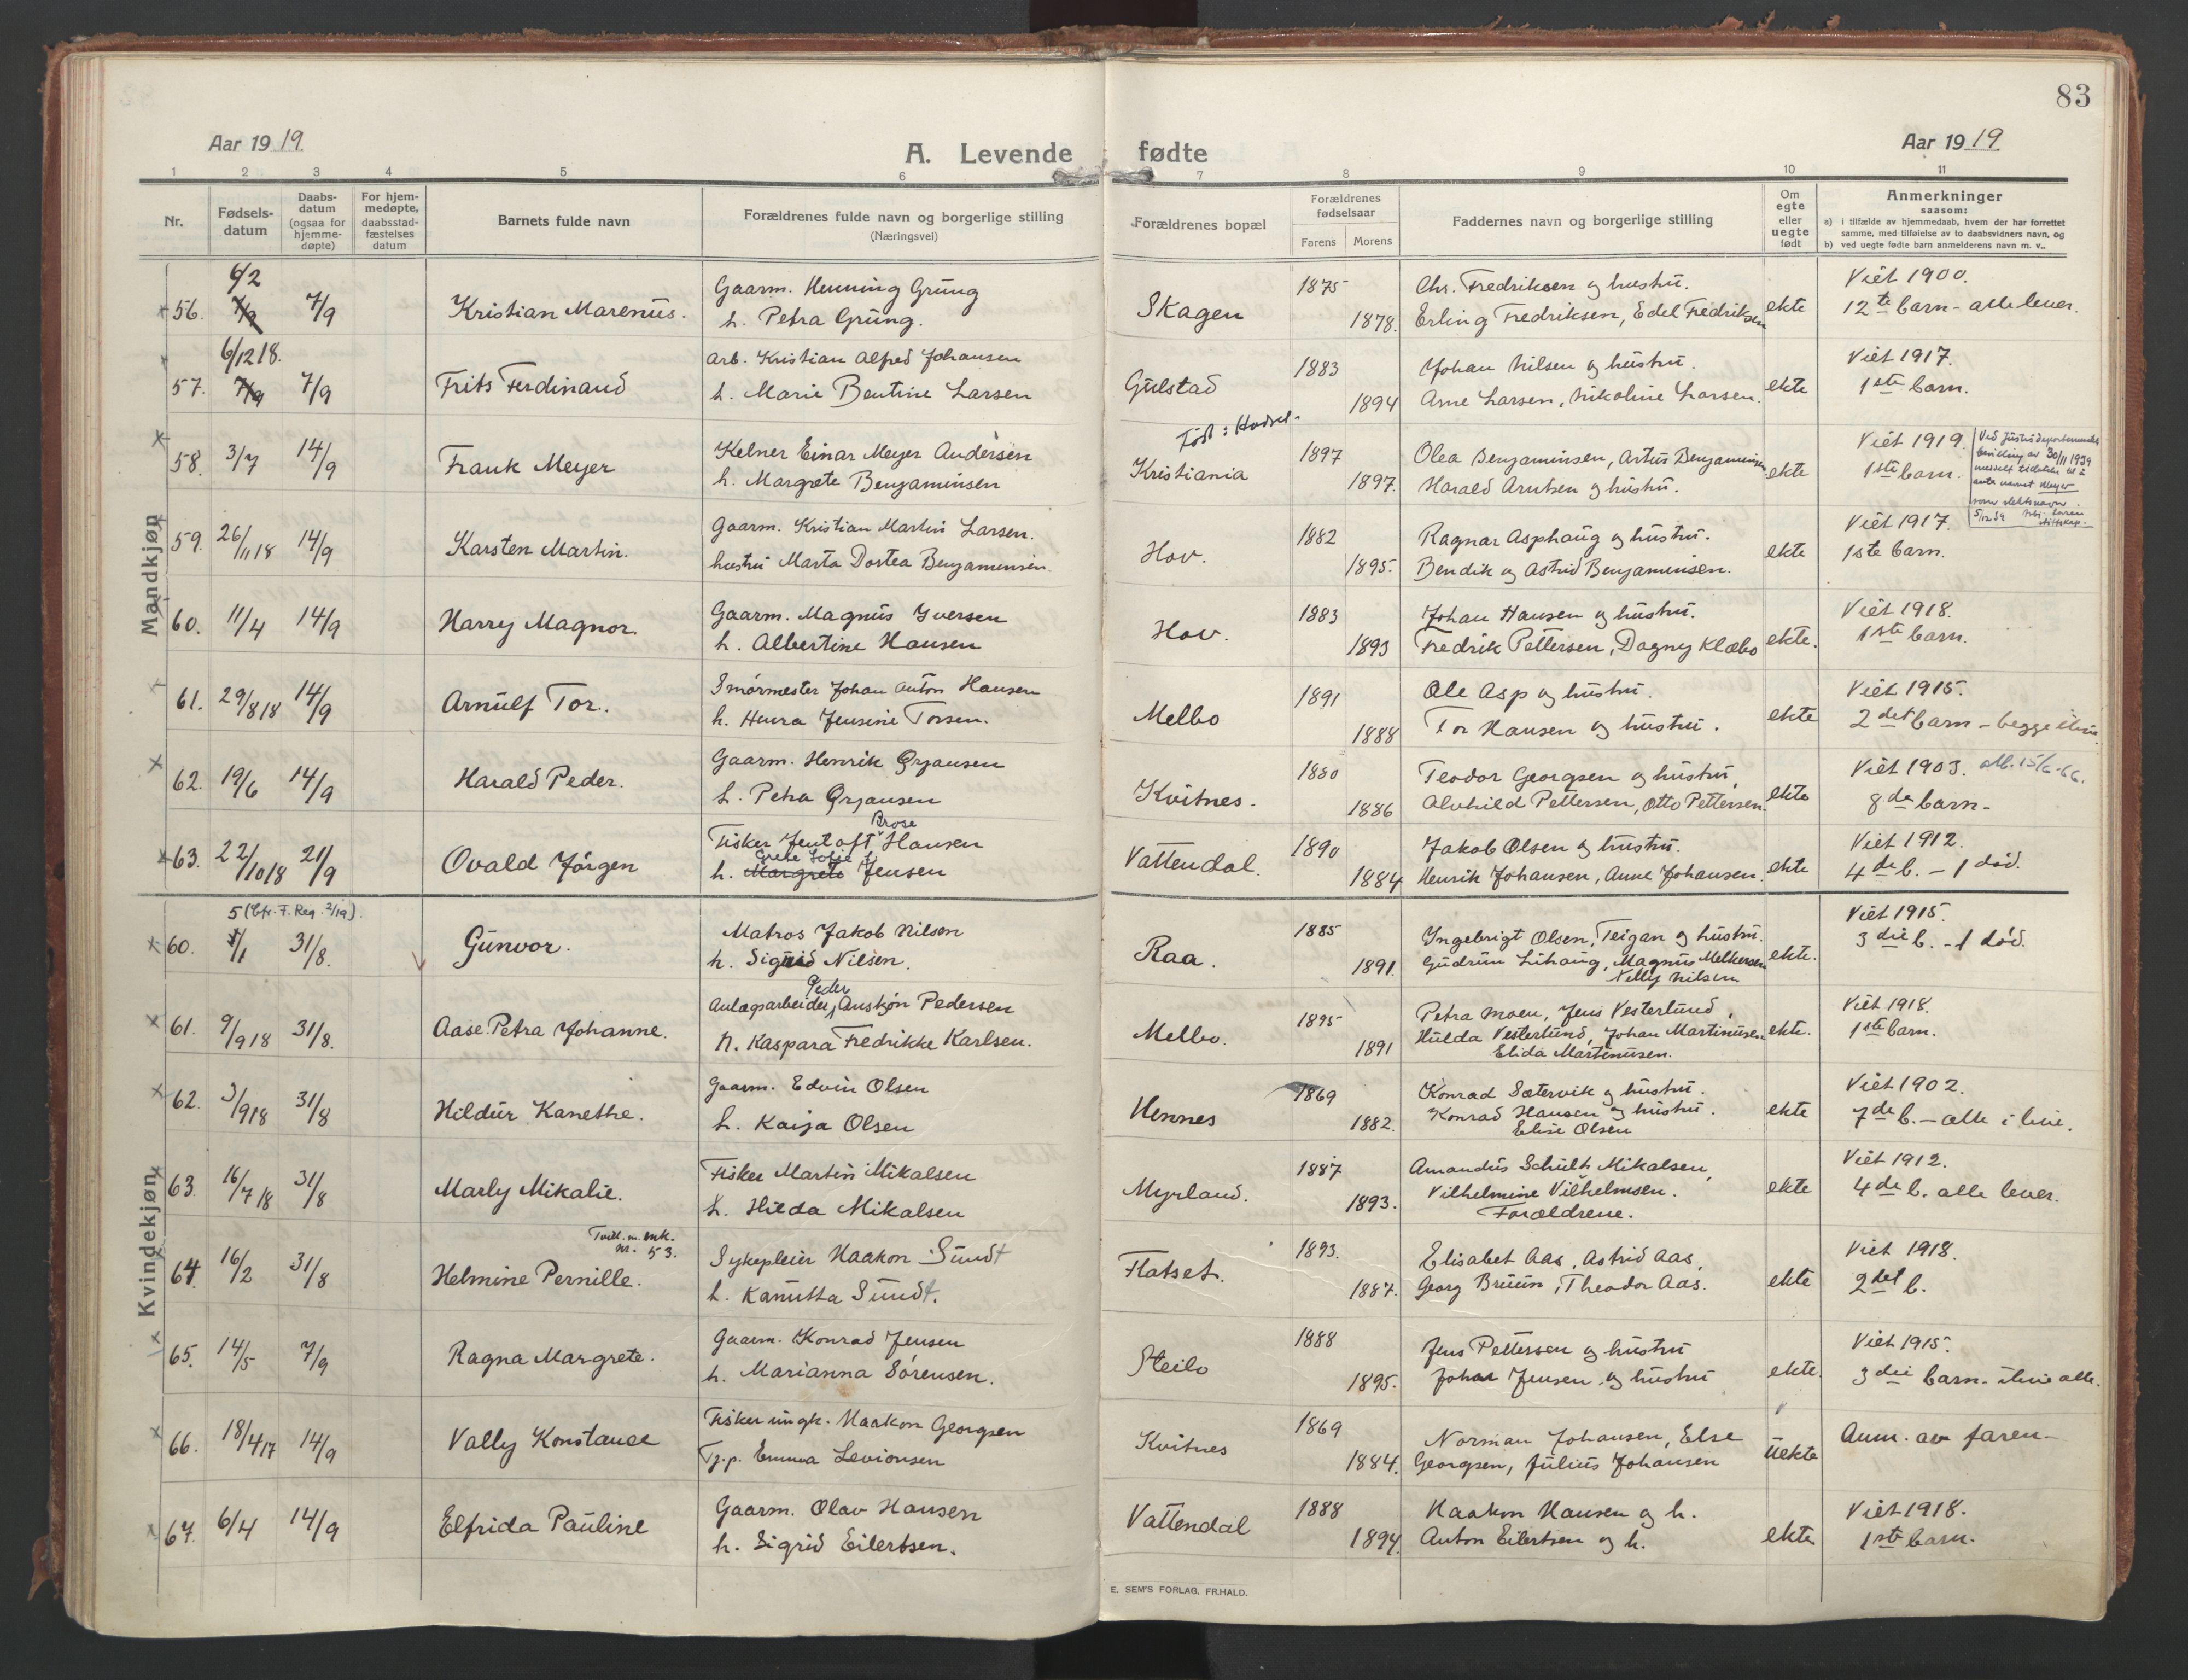 83
Aar 1919
A. Levende fødte
Aar 1919
1 2 3 4 5 6 7 8 9 10 11
Nr.
Fødsels-
datum
Daabs-
datum
(ogsaa for
hjemme-
døpte)
For hjem-
medøpte,
daabsstad-
fæstelses
datum
Barnets fulde navn
Forældrenes fulde navn og borgerlige stilling
(Næringsvei)
Forældrenes bopæl
Forældrenes
fødselsaar
Farens Morens
Faddernes navn og borgerlige stilling
Om
egte
eller
uegte
født
Anmerkninger
saasom:
a) i tilfælde av hjemmedaab, hvem der har forrettet
samme, med tilføielse av to daabsvidners navn, og
b) ved uegte fødte barn anmelderens navn m. v..
Mandkjøn
6/2 Gaarm. Henning Grung 1875 Chr. Fredriksen og hustru. Viet 1900.
56. 7/9 7/9 Kristian Marenus. h. Petra Grung. Skagen 1878. Erling Fredriksen, Edel Fredriksen ekte 12te barn - alle lever.
6/12 18. Arb. Kristian Alfred Johansen 1883 Johan Nilsen og hustru. Viet 1917.
57. 7/9 7/9 Frits Ferdinand h. Marie Bentine Larsen Gulstad 1894 Arne Larsen, Nikoline Larsen. ekte 1ste barn.
Født: Hadsel.
58. 3/7 14/9 Frank Meyer Kelner Einar Meyer Andersen 1897 Olea Benjaminsen, Artur Benjaminsen Viet 1919.
h. Margrete Benjaminsen Kristiania 1897. Harald Arntsen og hustru. ekte 1ste barn.
Ved Justisdepartementets
bevilling av 30/11 1939
meddelt tillatelse til å
anta navnet Meyer
som slektsnavn.
5/12 39
59. 26/11 18 14/9 Karsten Martin. Gaarm. Kristian Martin Larsen. 1882 Ragnar Asphaug og hustru. Viet 1917.
hustru Marta Dortea Benjaminsen. Hov. 1895. Bendik og Astrid Benjaminsen. ekte 1ste barn.
60. 11/4 14/9 Harry Magnor. Gaarm. Magnus Iversen 1883 Johan Hansen og hustru. Viet 1918.
h. Albertine Hansen Hov. 1893 Fredrik Pettersen, Dagny Klæbo ekte. 1ste barn.
61. 29/8 18 14/9 Arnulf Tor. Smørmester Johan Anton Hansen 1891 Ole Asp og hustru. Viet 1915.
h. Henra Jensine Torsen. Melbo 1888 Tor Hansen og hustru. ekte 2det barn - begge ilive
62. 19/6 14/9 Harald Peder. Gaarm. Henrik Ørjansen 1880 Teodor Georgsen og hustru, Viet 1903. att. 15/6-66.
h. Petra Ørjansen Kvitnes. 1886 Alvhild Pettersen, Otto Pettersen. ekte 8de barn -
Brose
63. 22/10 18 21/9 Ovald Jörgen Fisker Jentoft Hansen 1890 Jakob Olsen og hustru. Viet 1912.
Grete Sofie
h. Margrete Jensen Vattendal. 1884 Henrik Johansen, Anne Johansen. ekte 4de b. - 1 död.
Kvindekjøn
5 (Cfr. F. Reg. 2/19).
60. 1/1 31/8. Gunvor. Matros Jakob Nilsen 1885 Ingebrigt Olsen, Teigan og hustru. Viet 1915.
h. Sigrid Nilsen. Raa. 1891. Gudrun Lihaug, Magnus Melkersen ekte. 3die b. - 1 död.
Nelly Nilsen
Peder
61. 9/9 18 31/8. Aase Petra Johanne. Anlagsarbeider, Anskjøn Pedersen 1895 Petra Moen, Jens Vesterlund, Viet 1918.
h. Kaspara Fredrikke Karlsen. Melbo. 1891 Hulda Vesterlund, Johan Martinusen ekte. 1ste barn.
Elida Martinusen.
62. 3/9 18 31/8 Hildur Kanethe. Gaarm. Edvin Olsen 1869 Konrad Sætervik og hustru. Viet 1902.
h. Kaija Olsen Hennes 1882. Konrad Hansen og hustru. ekte 7de b. - alle i live.
Elise Olsen
63. 16/7 18 31/8 Marly Mikalie. Fisker Martin Mikalsen 1887 Amandus Schult Mikalsen, Viet 1912.
h. Hilda Mikalsen Myrland. 1893. Vilhelmine Vilhelmsen. ekte 4de b. alle lever.
Forældrene.
Tvill. m. mk.
nr. 53.
64. 16/2 31/8 Helmine Pernille. Sykepleier Haakon Sundt 1893. Elisabet Aas, Astrid Aas, Viet 1918.
h. Kanutta Sundt. Flatset. 1887. Georg Bruun, Theodor Aas. ekte 2det b.
65. 14/5 7/9 Ragna Margrete. Gaarm. Konrad Jensen 1888 Jens Pettersen og hustru Viet 1915.
h. Marianna Sörensen. Steilo 1895. Johan Jensen og hustru ekte. 3die barn - ilive alle.
66. 18/4 17 14/9 Vally Konstance Fisker ungk. Haakon Georgsen 1869 Norman Johansen, Else Anm. av faren -
Tj.p. Emma Levionsen Kvitnes 1884. Georgsen, Julius Johansen uekte
67. 6/4 14/9 Elfrida Pauline Gaarm. Olav Hansen 1888 Haakon Hansen og h. Viet 1918.
h. Sigrid Eilertsen. Vattendal 1894. Anton Eilertsen og h. ekte 1ste barn.
E. SEM'S FORLAG, FR.HALD.